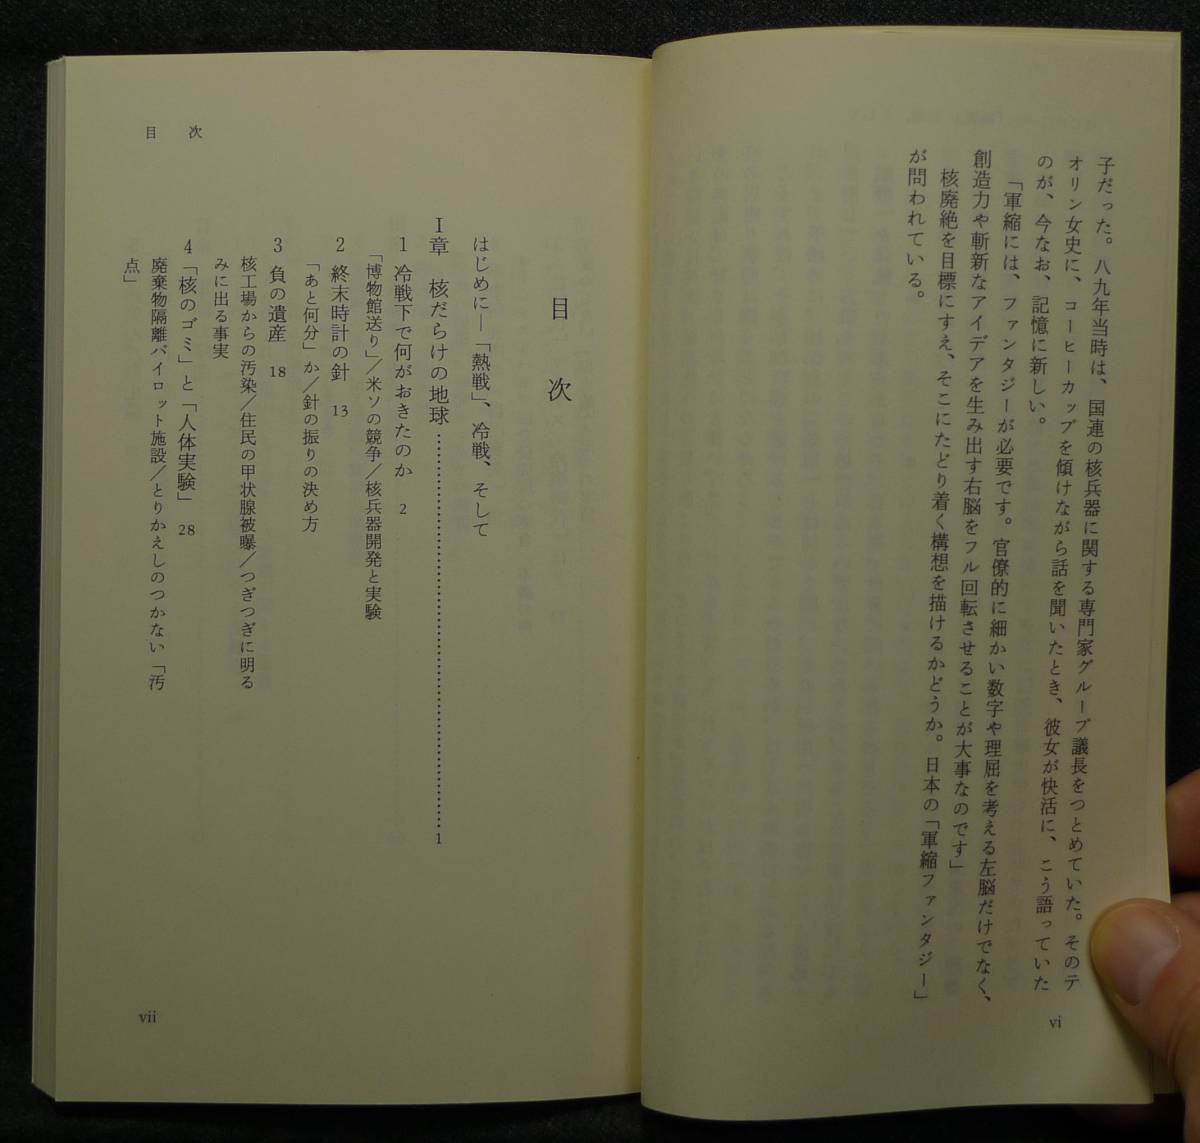 子だった。八九年当時は、国連の核兵器に関する専門家グループ議長をつとめていた。そのテ
オリン女史に、コーヒーカップを傾けながら話を聞いたとき、彼女が快活に、こう語っていた
のが、今なお、記憶に新しい。
「軍縮には、ファンタジーが必要です。官僚的に細かい数字や理屈を考える左脳だけでなく、
創造力や斬新なアイデアを生み出す右脳をフル回転させることが大事なのです」
核廃絶を目標にすえ、そこにたどり着く構想を描けるかどうか。日本の「軍縮ファンタジー」
が問われている。
vi
目次
目次
はじめに―「熱戦」、冷戦、そして
Ⅰ章 核だらけの地球 …………………………… 1
1 冷戦下で何がおきたのか 2
「博物館送り」/米ソの競争/核兵器開発と実験
2 終末時計の針 13
「あと何分」か/針の振りの決め方
3 負の遺産 18
核工場からの汚染/住民の甲状腺被曝/つぎつぎに明る
みに出る事実
4 「核のゴミ」と「人体実験」 28
廃棄物隔離パイロット施設/とりかえしのつかない「汚
点」
vii